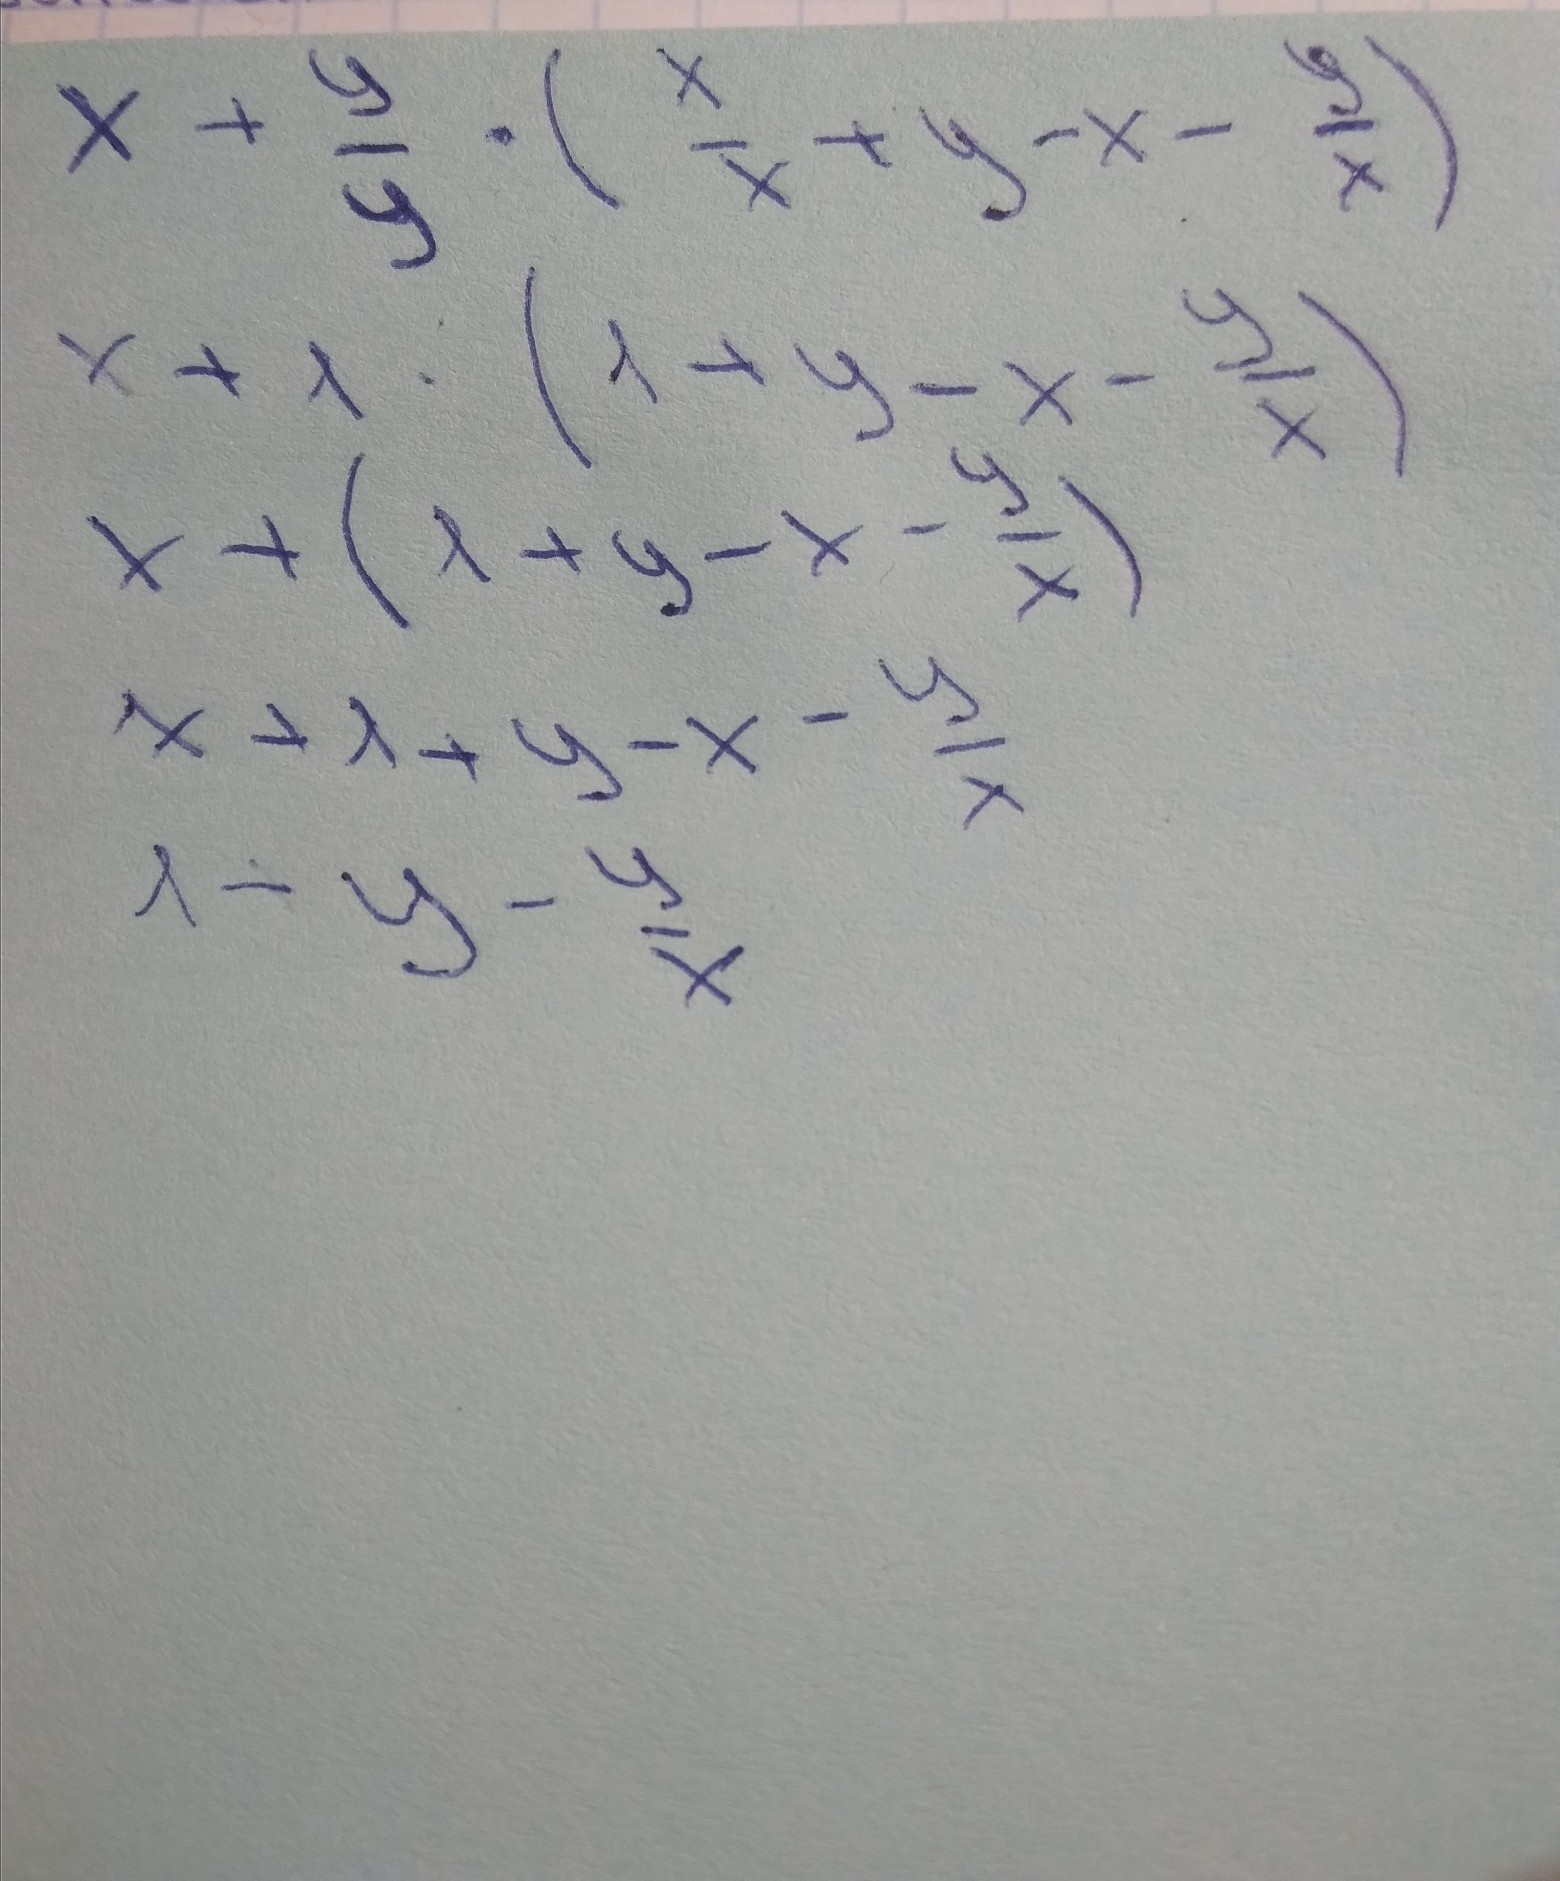 x + y/y · (x/x + y - x - y/x)
x + 1 · (1 + y - x - y/x)
x + (1 + y - x - y/x)
x + 1 + y - x - y/x
1 - y - y/x